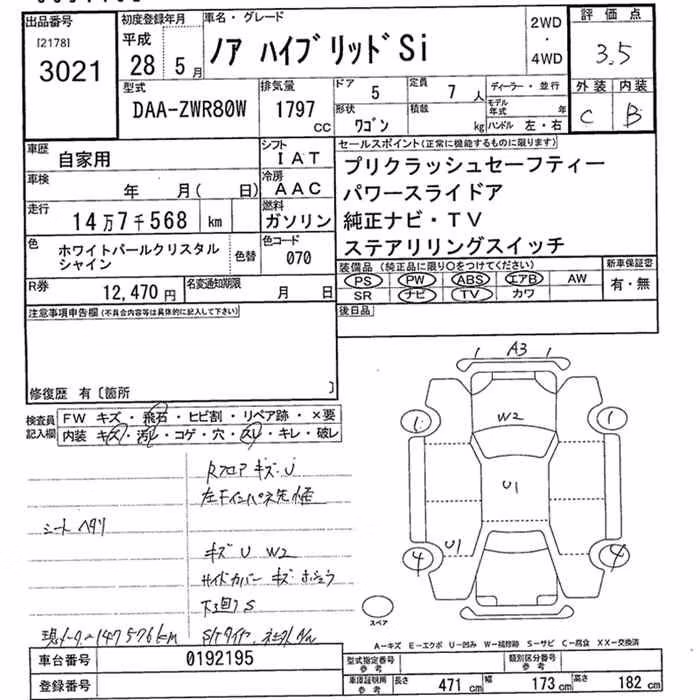 出品番号 初度登録年月 車名・グレード 2WD・4WD 評価点
[2178] 3021 平成 28 5月 ノア ハイブリッドSi 3.5
型式 排気量 ドア 5 定員 7人 ディーラー・並行 外装 内装
DAA-ZWR80W 1797 CC 形状 ワゴン 積載 kg モデル年式 年 ハンドル 左・右 C B
車歴 自家用 シフト IAT セールスポイント(正常に機能するものに限り)
車検 年 月( 日) 冷房 AAC プリクラッシュセーフティー
走行 14万7千568 km 燃料 ガソリン パワースライドア
純正ナビ・TV
色 ホワイトパールクリスタルシャイン 色替 色コード 070 ステアリリングスイッチ
装備品(純正品に限り○をつけてください) 新車保証書
R券 12,470円 名変通知期限 月 日 PS PW ABS エアB AW 有・無
SR ナビ TV カワ
注意事項申告欄(不具合内容等は具体的に記入して下さい) 後日品
修復歴 有〔箇所 〕
A3
検査員記入欄 FW キズ・飛石・ヒビ割・リペア跡・×要
内装 キズ・汚レ・コゲ・穴・スレ・キレ・破レ
W2
1 1
U1
U1
4 4
Rフロア キズ・U
シート ヘタリ
キズ U W2
サイドカバー キズ
下廻り S
スペア
147576km
A-キズ E-エクボ U-凹み W-補修跡 S-サビ C-腐食 XX-交換済
車台番号 0192195 型式指定番号 参考 類別区分番号 参考
登録番号 車庫証明用 参考 長さ 471 cm 幅 173 cm 高さ 182 cm